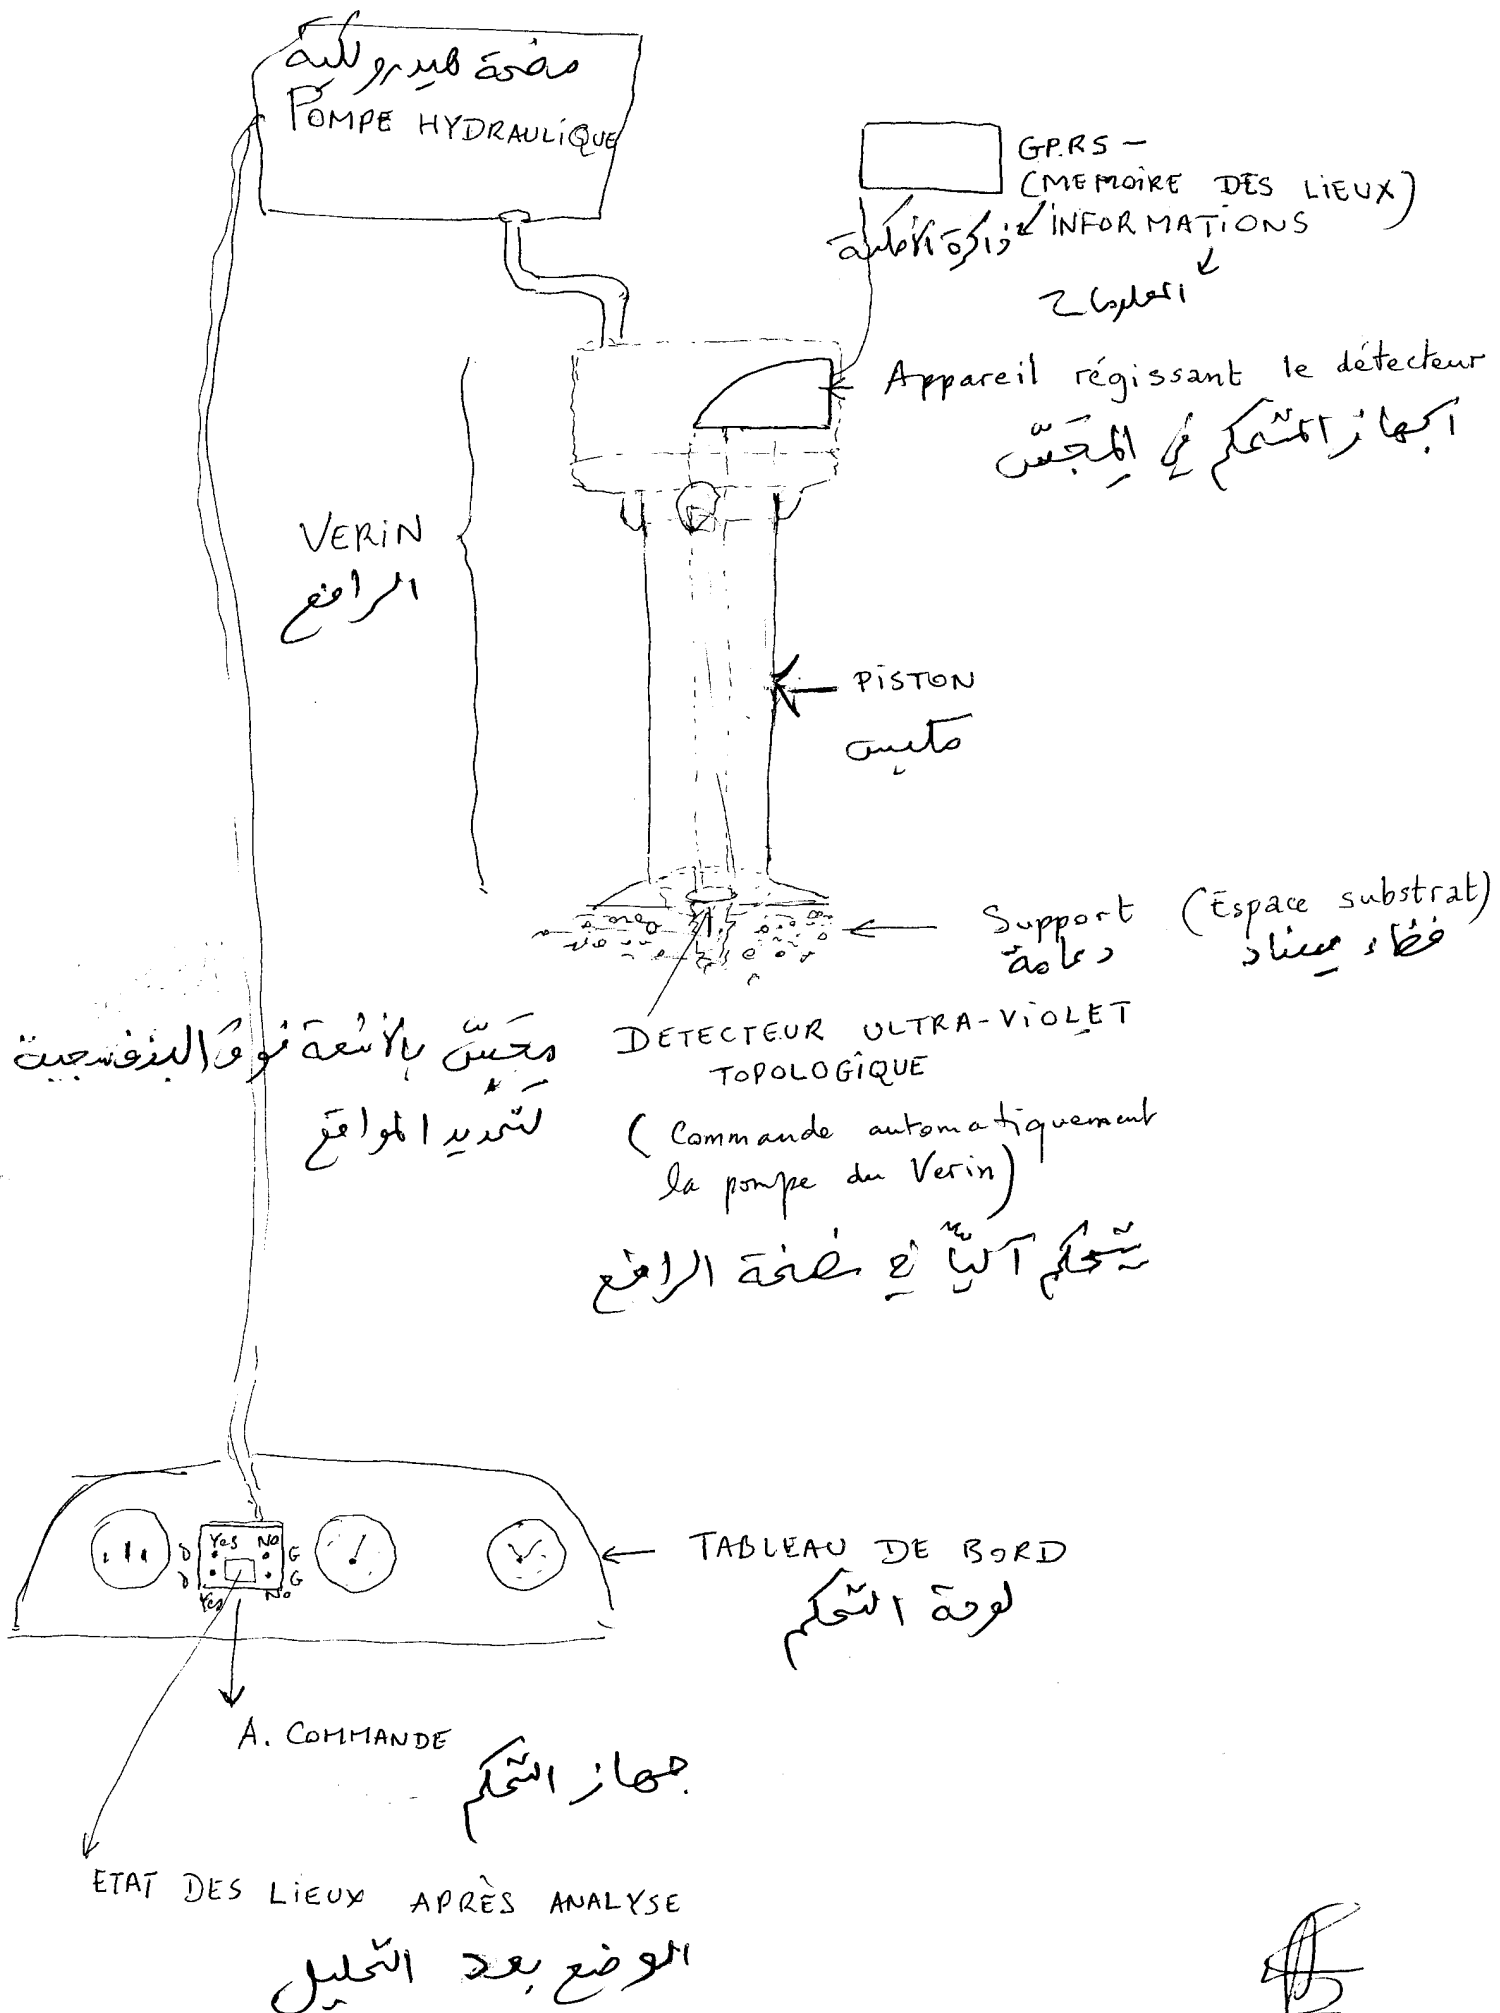 مضخة هيدرولكية
POMPE HYDRAULIQUE
GPRS -
(MEMOIRE DES LIEUX)
INFORMATIONS
ذاكرة الأمكنة
المعلومات
Appareil régissant le détecteur
الجهاز المتحكم في المِجَسّ
VERIN
الرافع
PISTON
مكبس
Support (Espace substrat)
دعامة فضاء مسناد
DETECTEUR ULTRA-VIOLET
TOPOLOGIQUE
مِجَسّ بالأشعة فوق البنفسجية
لتحديد المواقع
(Commande automatiquement
la pompe du Verin)
يتحكم آلياً في مضخة الرافع
Yes No
D G
D G
Yes No
TABLEAU DE BORD
لوحة التحكم
A. COMMANDE
جهاز التحكم
ETAT DES LIEUX APRÈS ANALYSE
الوضع بعد التحليل